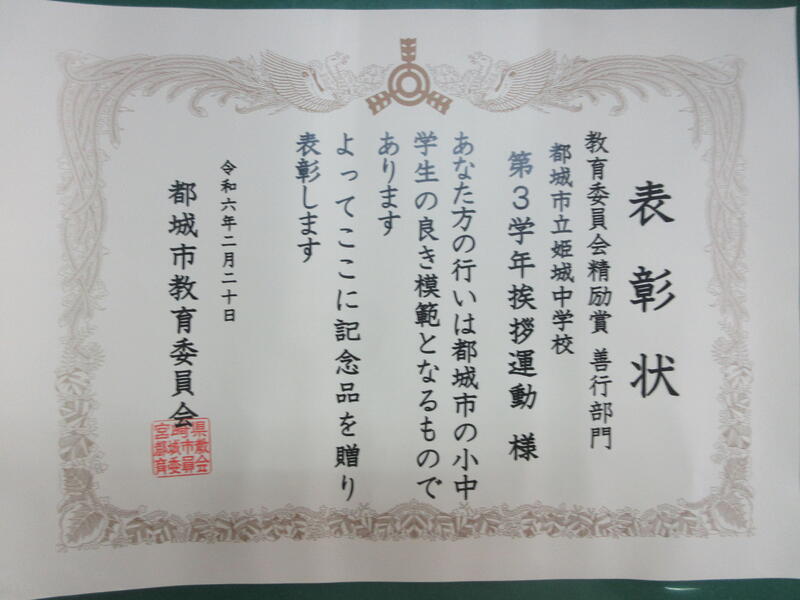 表彰状
教育委員会精励賞 善行部門
都城市立姫城中学校
第3学年挨拶運動 様
あなた方の行いは都城市の小中
学生の良き模範となるもので
あります
よってここに記念品を贈り
表彰します
令和六年二月二十日
都城市教育委員会